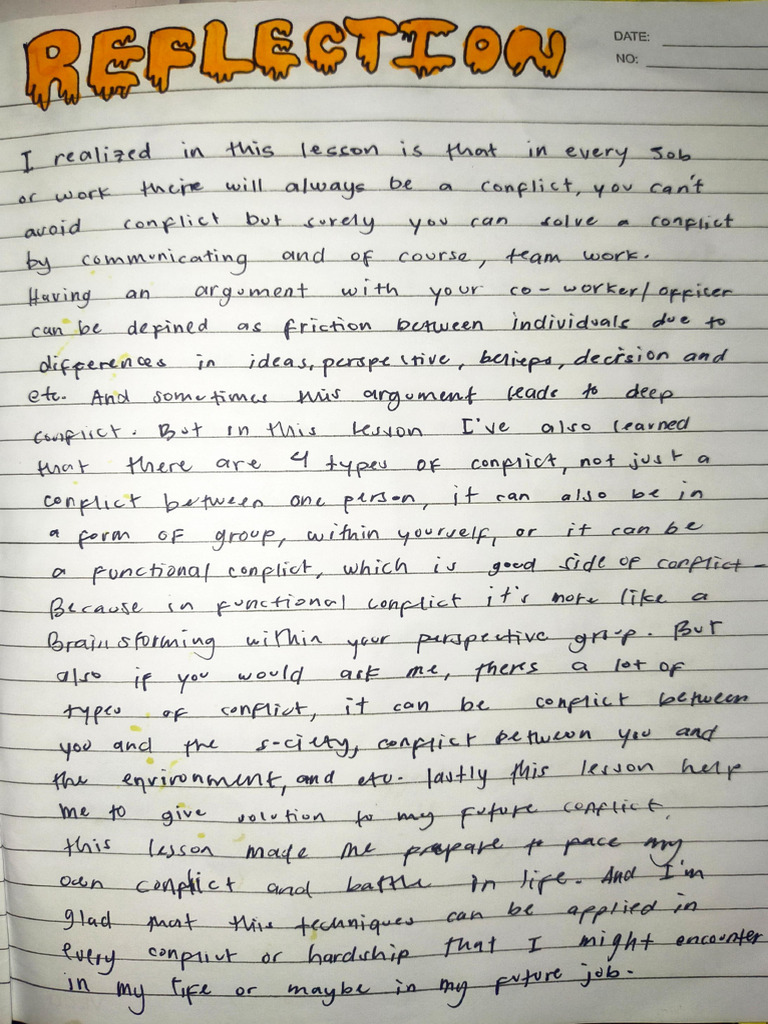 REFLECTION
DATE:
NO:
I realized in this lesson is that in every Job
or work there will always be a conflict, you can't
avoid conflict but surely you can solve a conflict
by communicating and of course, team work.
Having an argument with your co-worker/officer
can be defined as friction between individuals due to
differences in ideas, perspective, beliefs, decision and
etc. And sometimes this argument leads to deep
conflict. But in this lesson I've also learned
that there are 4 types of conflict, not just a
conflict between one person, it can also be in
a form of group, within yourself, or it can be
a functional conflict, which is good side of conflict-
Because in functional conflict it's more like a
Brainstorming within your perspective group. But
also if you would ask me, theres a lot of
types of conflict, it can be conflict between
you and the society, conflict between you and
the environment, and etc. lastly this lesson help
me to give solution to my future conflict.
this lesson made me prepare to face my
own conflict and battle in life. And I'm
glad that this techniques can be applied in
every conflict or hardship that I might encounter
in my life or maybe in my future job.